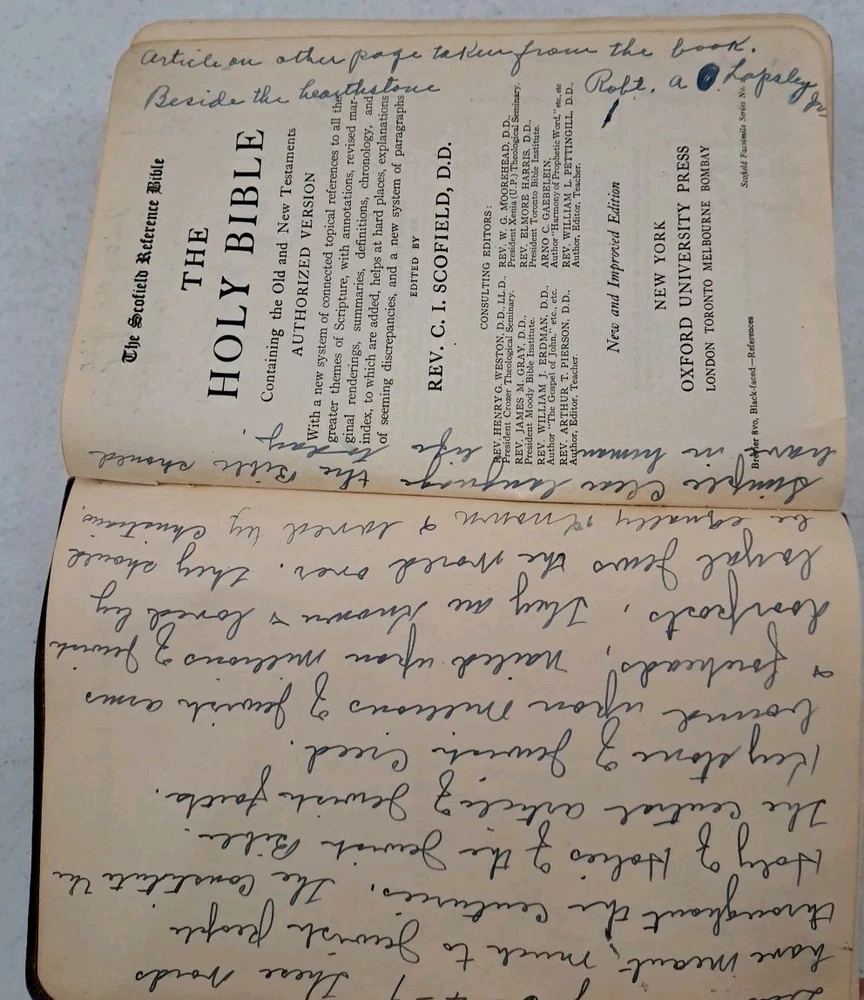 Article on other page taken from the book.
Beside the hearthstone Robt. A Lapsley Jr.
The Scofield Reference Bible
THE
HOLY BIBLE
Containing the Old and New Testaments
AUTHORIZED VERSION
With a new system of connected topical references to all the
greater themes of Scripture, with annotations, revised mar-
ginal renderings, summaries, definitions, chronology, and
index, to which are added, helps at hard places, explanations
of seeming discrepancies, and a new system of paragraphs
EDITED BY
REV. C. I. SCOFIELD, D.D.
CONSULTING EDITORS:
REV. HENRY G. WESTON, D.D., LL.D.,
President Crozer Theological Seminary.
REV. JAMES M. GRAY, D.D.,
President Moody Bible Institute.
REV. WILLIAM J. ERDMAN, D.D.,
Author "The Gospel of John," etc., etc.
REV. ARTHUR T. PIERSON, D.D.,
Author, Editor, Teacher.
REV. W. G. MOOREHEAD, D.D.,
President Xenia (U.P.) Theological Seminary.
REV. ELMORE HARRIS, D.D.,
President Toronto Bible Institute.
ARNO C. GAEBELEIN,
Author "Harmony of Prophetic Word," etc., etc
REV. WILLIAM L. PETTINGILL, D.D.,
Author, Editor, Teacher.
New and Improved Edition
NEW YORK
OXFORD UNIVERSITY PRESS
LONDON TORONTO MELBOURNE BOMBAY
Brevier 8vo, Black-faced—References
Scofield Facsimile Series No.
6 4-9 These words
have meant much to Jewish people
throughout the centuries. The Constitute the
Holy of Holies of the Jewish Bible.
The central article of Jewish faith.
Keystone of Jewish Creed.
bound upon millions of Jewish arms
& foreheads, nailed upon millions of Jewish
doorposts, They are known & loved by
loyal Jews the world over. They should
be equally known & loved by Christians.
Simple clear language the Bible should
have in human life today.